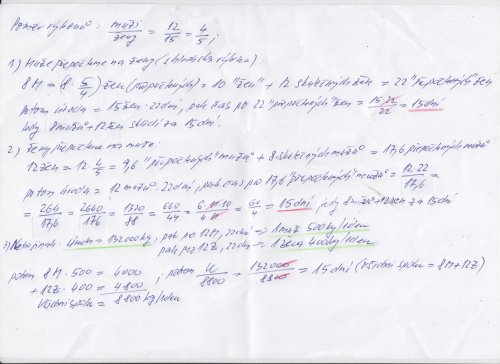 Poměr výkonů : muži/ženy = 12/15 = 4/5 ;
1) Muže přepočteme na ženy (z hlediska výkonu):
8M = (8 · 5/4) žen (přepočtených) = 10 "žen" + 12 skutečných žen = 22 "přepočtených" žen
potom úroda = 15 žen · 22 dní, pak čas pro 22 "přepočtených" žen = 15·22/22 = 15 dní
tedy 8 mužů + 12 žen sklidí za 15 dní.
2) Ženy přepočteme na muže:
12 žen = 12 · 4/5 = 9,6 "přepočtených" mužů + 8 skutečných mužů = 17,6 přepočtených mužů
potom úroda = 12 mužů · 22 dní, pak čas pro 17,6 "přepočtených" mužů = 12·22/17,6 =
= 264/17,6 = 2640/176 = 1320/88 = 660/44 = 6·11·10/4·11 = 60/4 = 15 dní tedy 8 mužů + 12 žen za 15 dní
3) = 132000 kg, pak pro 12M, 22 dnů = 1 muž 500 kg/1 den
pak pro 15Ž, 22 dnů = 1 žena 400 kg/1 den
potom 8M · 500 = 4000 ; potom /8800 = 132000/8800 = 15 dní ( = 8M + 12Ž)
+ 12Ž · 400 = 4800
= 8800 kg/1 den